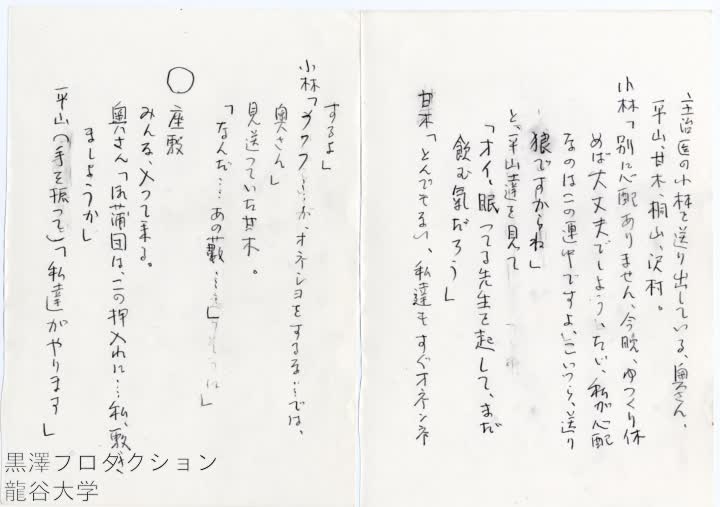 主治医の小林を送り出している、奥さん、
平山、甘木、桐山、沢村。
小林「別に心配ありません、今晩、ゆっくり休
めば大丈夫でしょう、たゞ、私が心配
なのはこの連中ですよ、こいつら、送り
狼ですからね」
と、平山達を見て
「オイ、眠ってる先生を起して、まだ
飲む氣だろう」
甘木「とんでもない、私達もすぐオネンネ
するよ」
小林「ウフフ……が、オネショをするな…では、
奥さん」
見送っていた甘木。
「なんだ…。あの藪…」
◯ 座敷
みんな、入って来る。
奥さん「お蒲団は、この押入れに…私、敷き
ましょうか」
平山（手を振って）「私達がやります」
黒澤プロダクション
龍谷大学